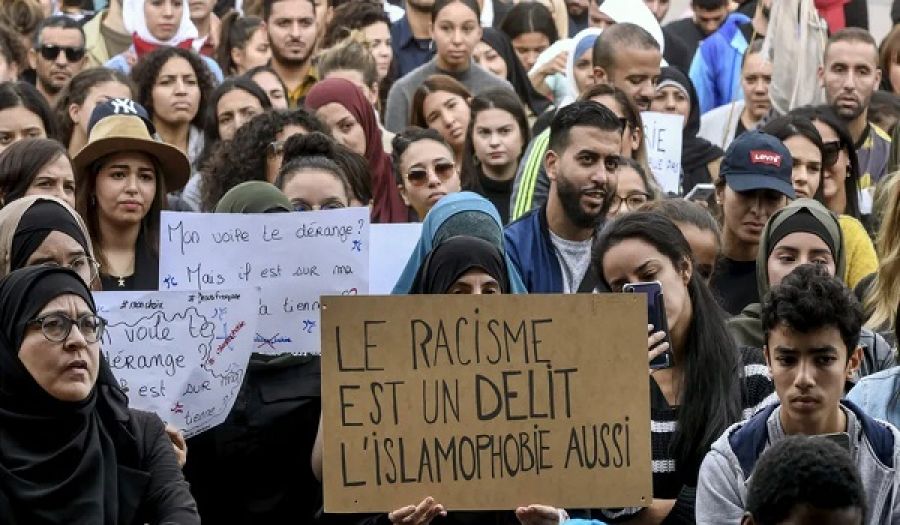 Mon voile te dérange ?
Mais il est sur ma
à tienne
#Mon choix
on voile te
dérange ?
est sur
tienne
LE RACISME
EST UN DELIT
L'ISLAMOPHOBIE AUSSI
Levi's
NY